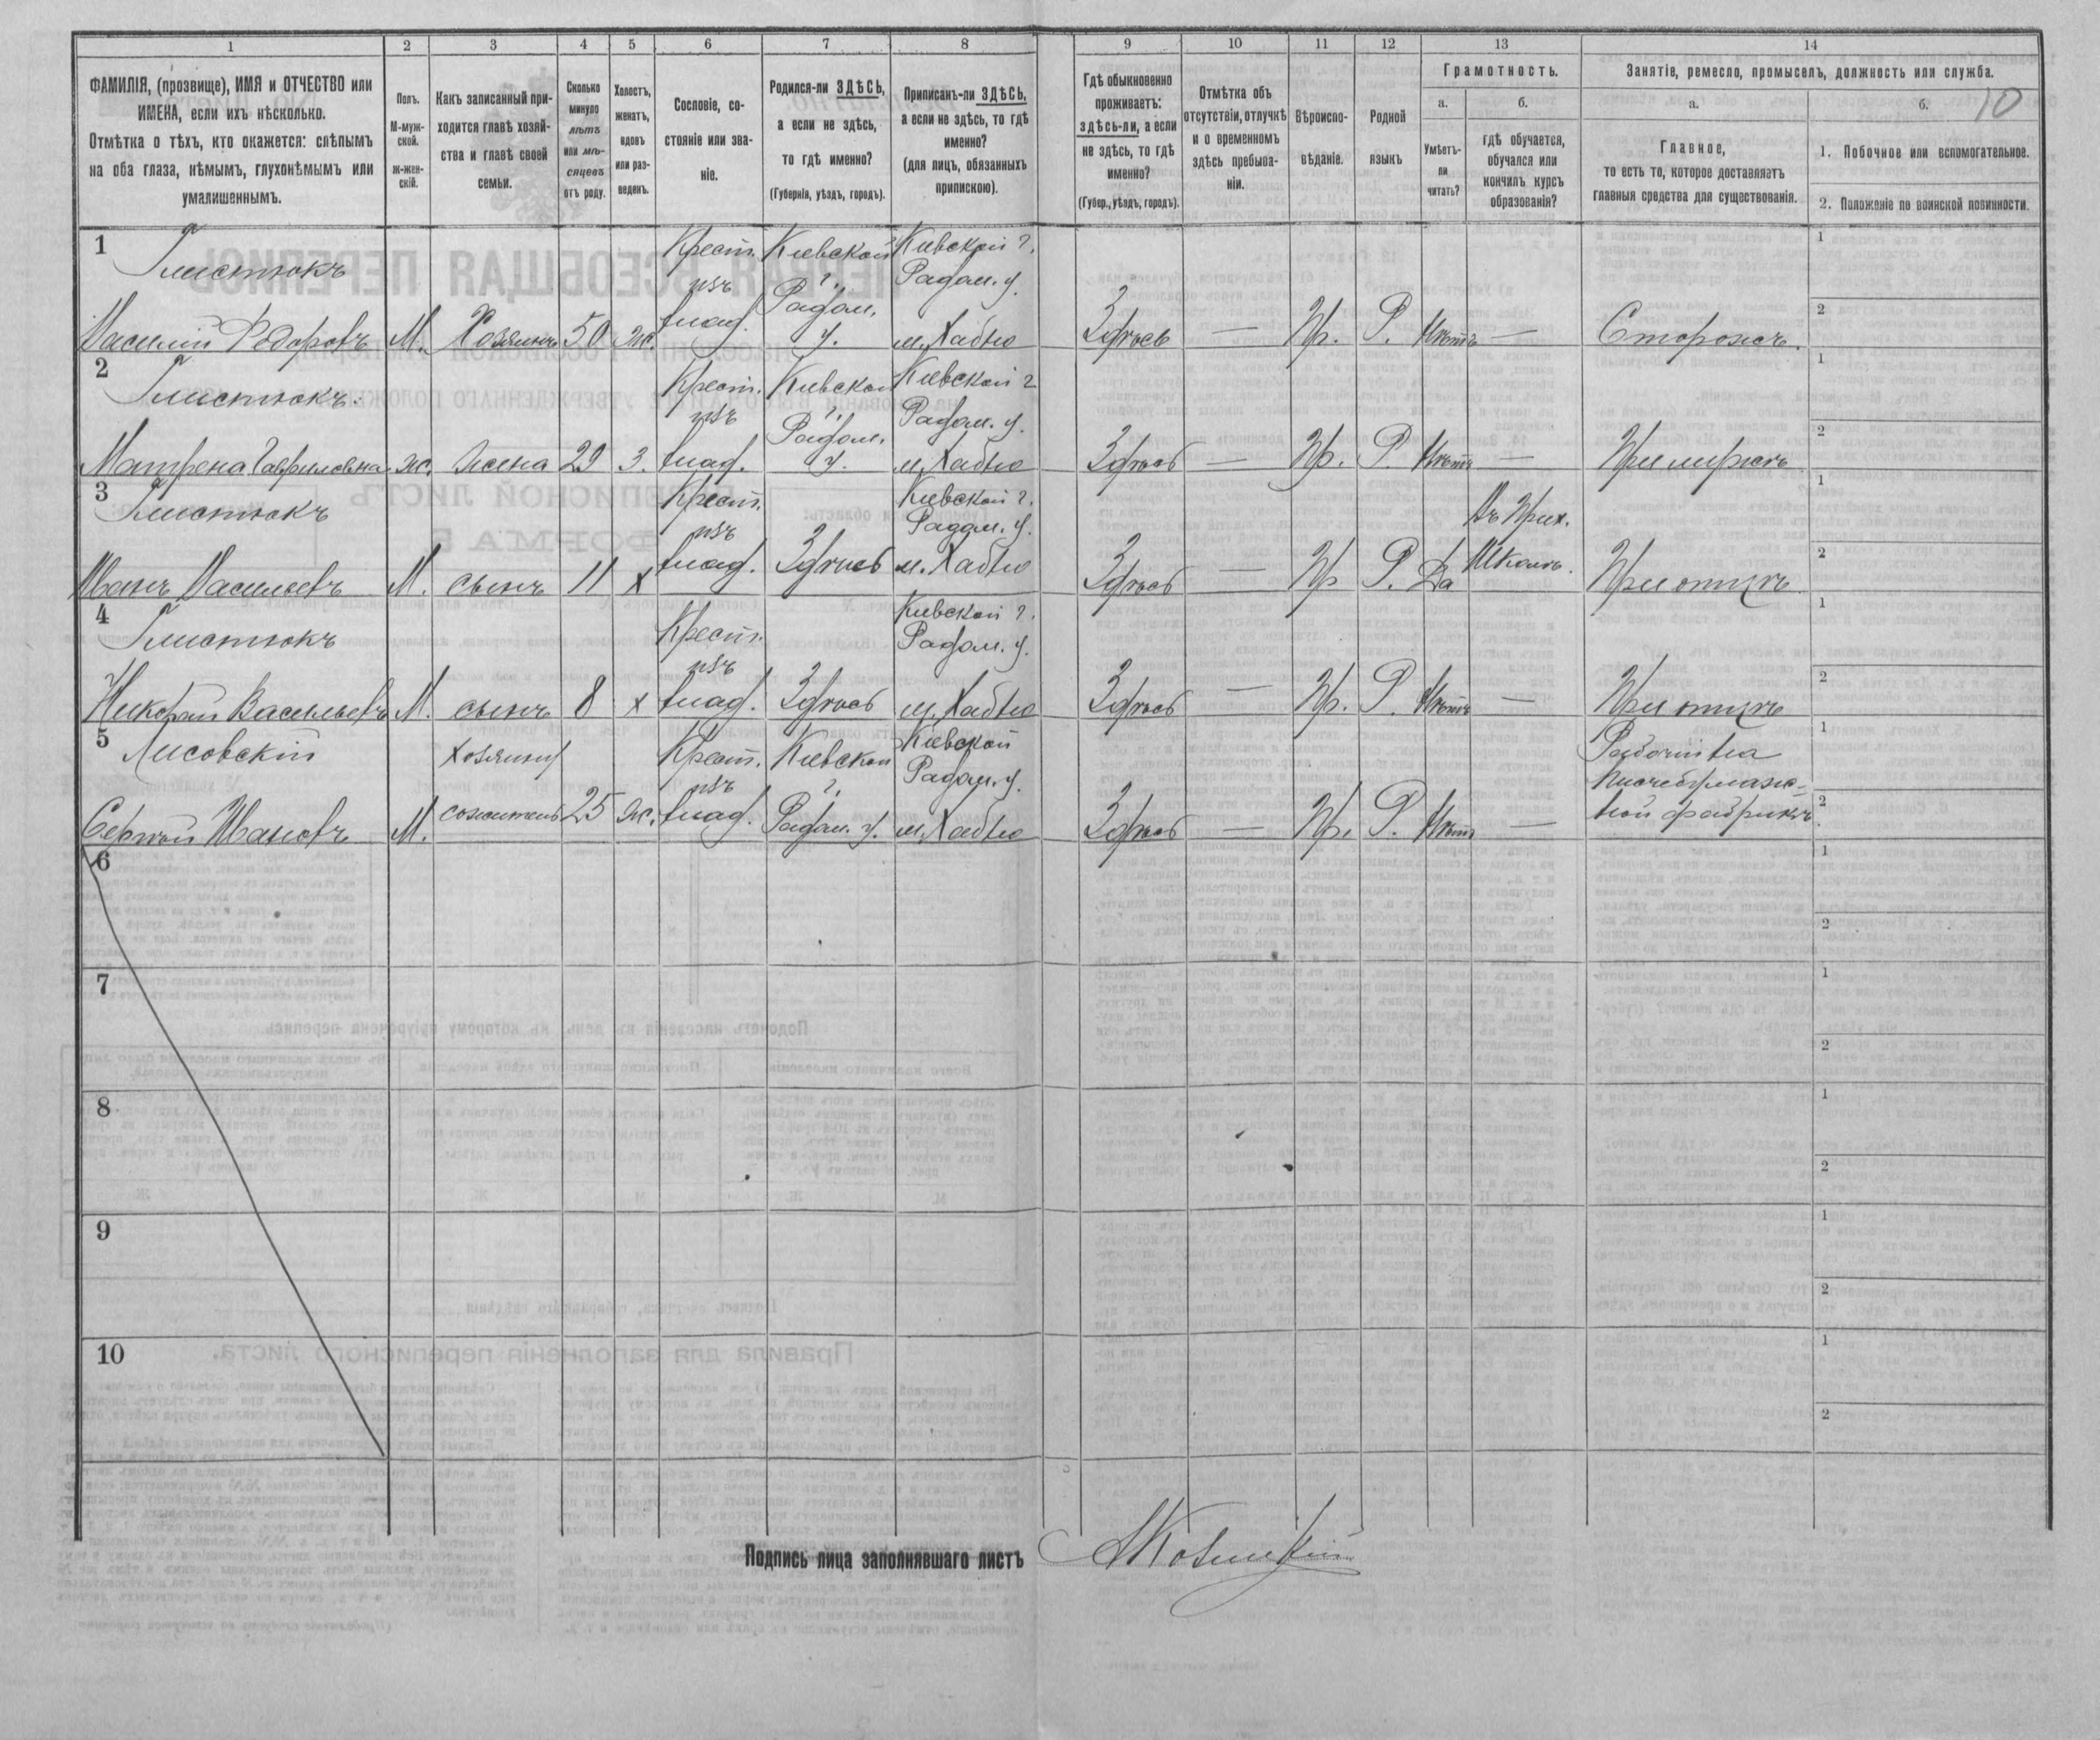 1 2 3 4 5 6 7 8 9 10 11 12 13 14
ФАМИЛІЯ, (прозвище), ИМЯ и ОТЧЕСТВО или
ИМЕНА, если ихъ нѣсколько.
Отмѣтка о тѣхъ, кто окажется: слѣпымъ
на оба глаза, нѣмымъ, глухонѣмымъ или
умалишеннымъ.
Полъ.
М-муж-
ской.
Ж-жен-
скій.
Какъ записанный при-
ходится главѣ хозяй-
ства и главѣ своей
семьи.
Сколько
минуло
лѣтъ
или мѣ-
сяцевъ
отъ роду.
Холостъ,
женатъ,
вдовъ
или раз-
веденъ.
Сословіе, со-
стояніе или зва-
ніе.
Родился-ли ЗДѢСЬ,
а если не здѣсь,
то гдѣ именно?
(Губернія, уѣздъ, городъ).
Приписанъ-ли ЗДѢСЬ,
а если не здѣсь, то гдѣ
именно?
(для лицъ, обязанныхъ
припискою).
Гдѣ обыкновенно
проживаетъ:
здѣсь-ли, а если
не здѣсь, то гдѣ
именно?
(Губер., уѣздъ, городъ).
Отмѣтка объ
отсутствіи, отлучкѣ
и о временномъ
здѣсь пребыва-
ніи.
Вѣроиспо-
вѣданіе.
Родной
языкъ
Грамотность.
а.
Умѣетъ-
ли
читать?
б.
гдѣ обучается,
обучался или
кончилъ курсъ
образованія?
Занятіе, ремесло, промыселъ, должность или служба.
а.
Главное,
то есть то, которое доставляетъ
главныя средства для существованія.
б.
10
1. Побочное или вспомогательное.
2. Положеніе по воинской повинности.
1
Глистюкъ
Василій Ѳедоровъ
М.
Хозяинъ
50
Же.
Крест.
изъ
влад.
Кіевской
г.
Радом.
у.
Кіевской г.
Радом. у.
м. Хабно
Здѣсь
—
Пр.
Р.
Нѣтъ
—
Сторожъ.
1
2
2
Глистюкъ.
Матрена Гавриловна
Же.
Жена
29
З.
Крест.
изъ
влад.
Кіевской
г.
Радом.
у.
Кіевской г
Радом. у.
м. Хабно
Здѣсь
—
Пр.
Р.
Нѣтъ
—
При мужѣ
1
2
3
Глистюкъ
Иванъ Васильевъ
М.
сынъ
11
х
Крест.
изъ
влад.
Здѣсь
Кіевской г.
Радом. у.
м. Хабно
Здѣсь
—
Пр
Р.
Да
Въ Прих.
Школѣ.
При отцѣ
1
2
4
Глистюкъ
Николай Васильевъ
М.
сынъ
8
х
Крест.
изъ
влад.
Здѣсь
Кіевской г.
Радом. у.
м. Хабно
Здѣсь
—
Пр.
Р.
Нѣтъ
—
При отцѣ
1
2
5
Лисовскій
Сергѣй Ивановъ
М.
Хозяину
сожитель
25
Же.
Крест.
изъ
влад.
Кіевской
г.
Радом. у.
Кіевской
Радом. у.
м. Хабно
Здѣсь
—
Пр.
Р.
Нѣтъ
—
Рабочій на
писчебумаж-
ной фабрикѣ
1
2
6
1
2
7
1
2
8
1
2
9
1
2
10
1
2
Подпись лица заполнявшаго листъ